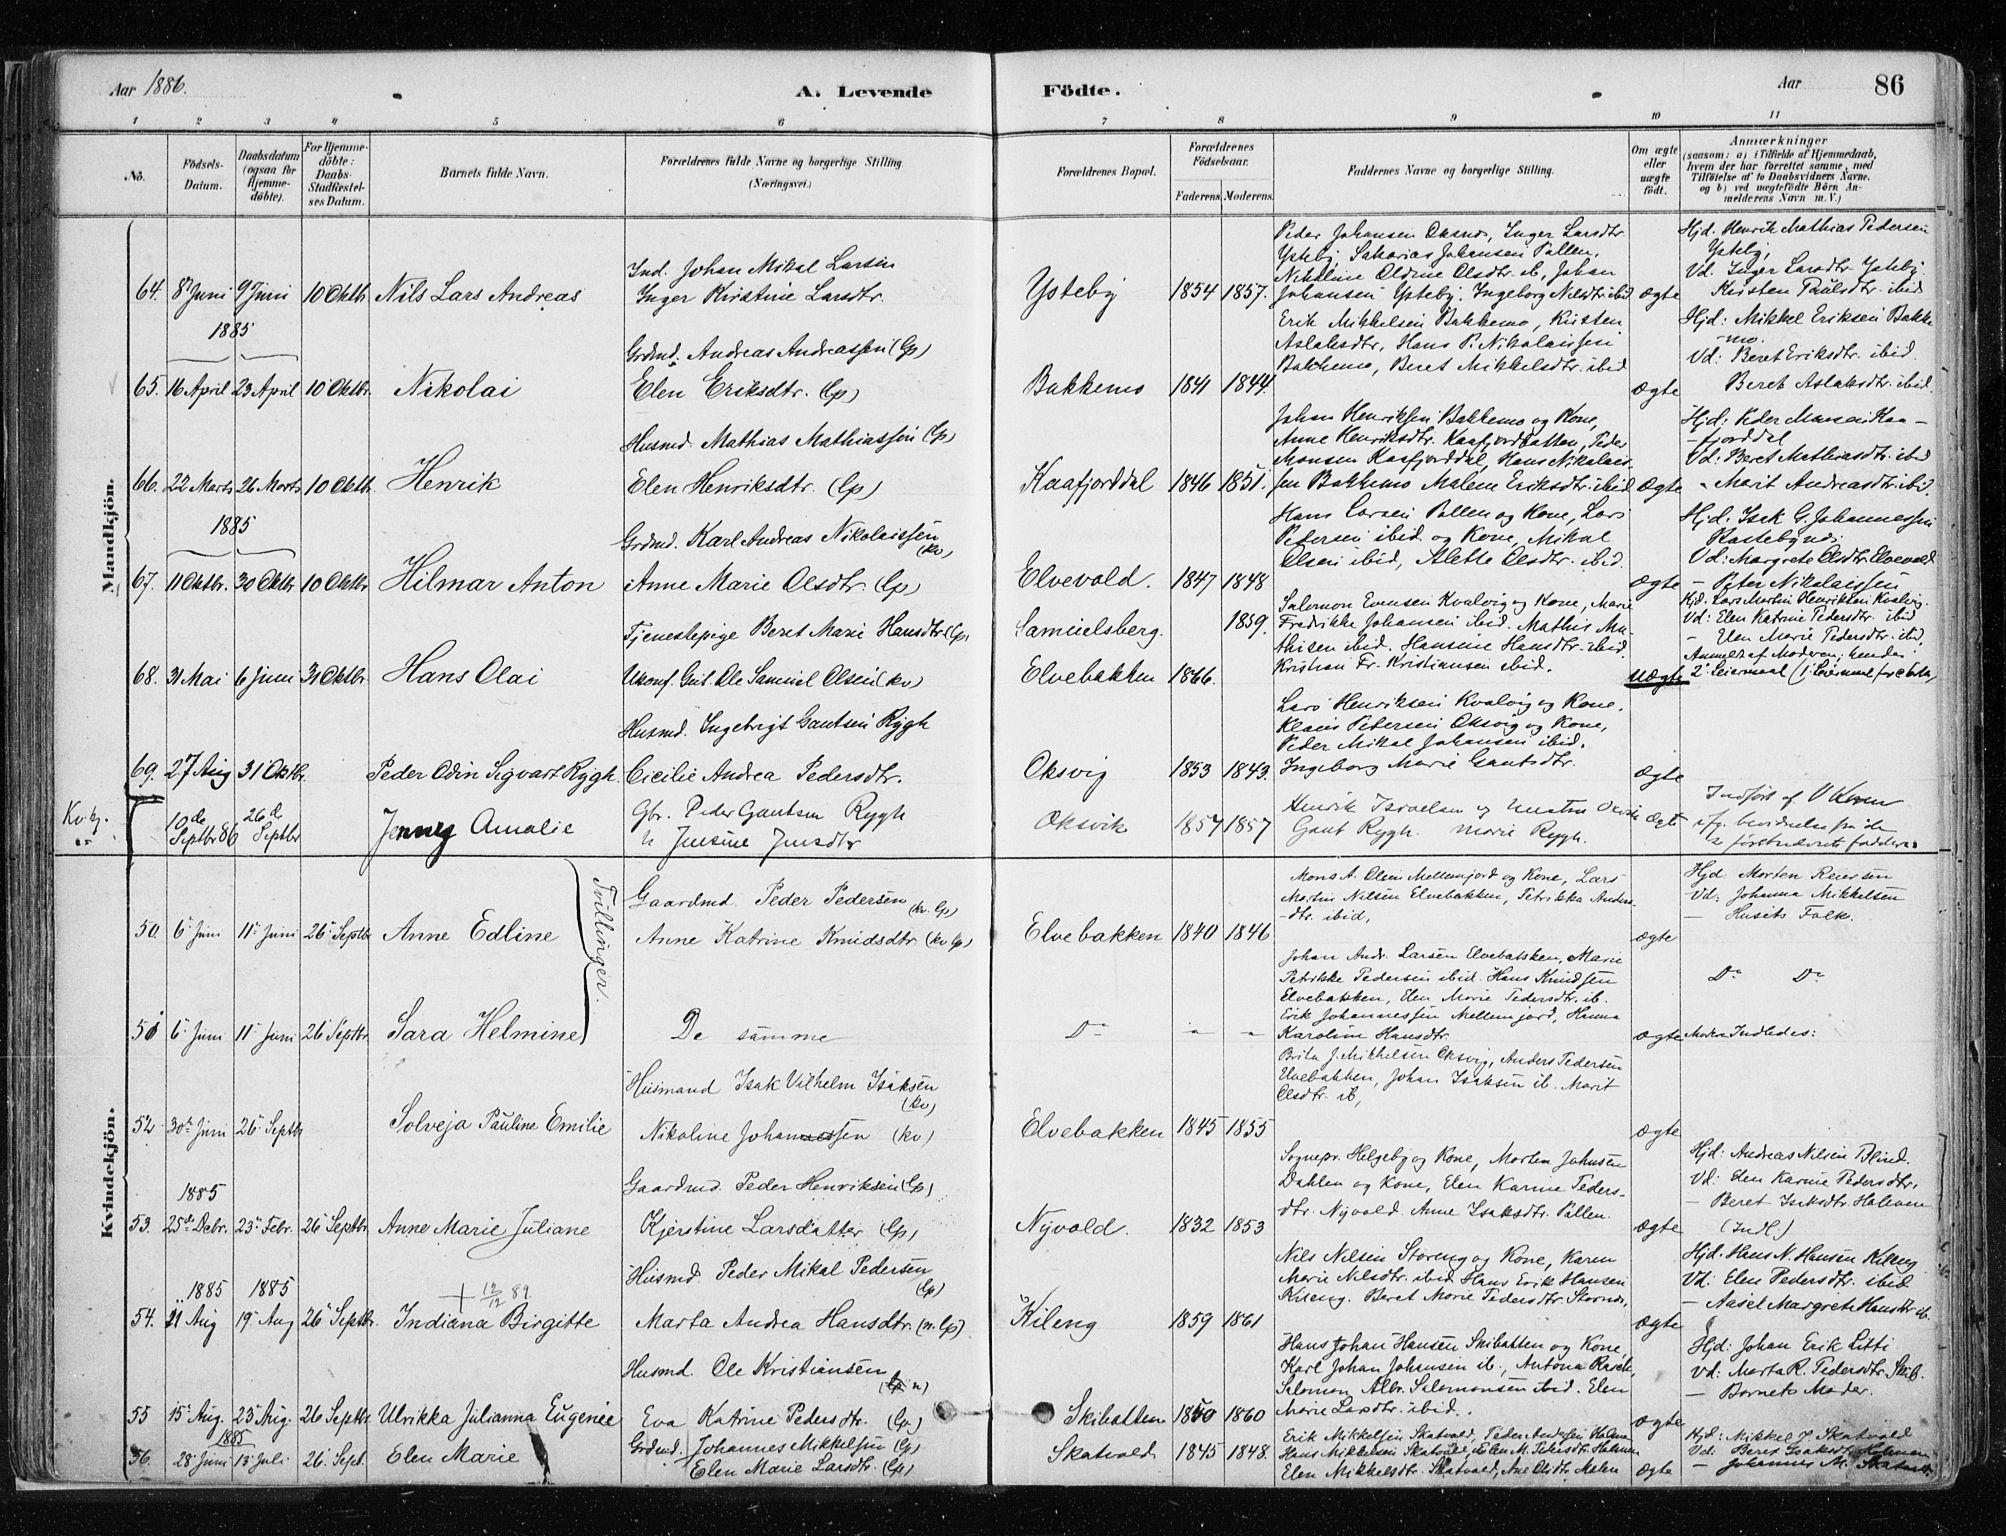 Aar 1886.
A. Levende
Födte.
Aar
86
1 2 3 4 5 6 7 8 9 10 11
No.
Födsels-
Datum.
Daabsdatum
(ogsaa for
Hjemme-
döbte).
For Hjemme-
döbte:
Daabs-
Stadfæstel-
ses Datum.
Barnets fulde Navn.
Forældrenes fulde Navne og borgerlige Stilling.
(Næringsvei.)
Forældrenes Bopæl.
Forældrenes
Födselsaar.
Faderens. Moderens.
Faddernes Navne og borgerlige Stilling.
Om ægte
eller
uægte
födt.
Anmærkninger
(saasom: a) i Tilfælde af Hjemmedaab,
hvem der har forrettet samme, med
Tilföielse af to Daabsvidners Navne.
og b) ved uægtefödte Börn An-
melderens Navn m. V.)
Mandkjön.
64. 8de Juni 9 Juni 10 Oktb. Nils Lars Andreas
Ind. Johan Mikal Larsen
Inger Kirstine Larsdtr.
Ysteby 1854 1857.
Peder Johansen Oksnes, Inger Larsdtr.
Ysteby, Sakarias Johansen Pallen,
Nikoline Oldine Olsdtr. ib, Johan
Johansen Ysteby. Ingeborg Nilsdtr. ibid
ægte
Hjd. Henrik Mathias Pedersen
Ysteby,
Vd. Inger Larsdtr Ysteby
Kirsten Paulsdtr. ibid
1885
65. 16 April 23 April 10 Oktbr. Nikolai
Grdmd. Andreas Andreassen (lp)
Elen Eriksdtr. (lp)
Bakkemo 1841 1844.
Erik Mikkelsen Bakkemo, Kirsten
Aslaksdtr, Hans P. Nikolaissen
Bakkemo, Beret Mikkelsdtr. ibid
ægte
Hjd: Mikkel Eriksen Bakke
mo.
Vd: Beret Eriksdtr. ibid.
Beret Aslaksdtr. ibid.
66. 22 Marts 26 Marts 10 Oktb. Henrik
Husmd. Mathias Mathiassen (lp)
Elen Henriksdtr. (lp)
Kaafjorddal 1846 1851.
Johan Henriksen Bakkemo og Kone,
Anne Henriksdtr. Kaafjordbatten, Peder
Monsen Kaafjorddal, Hans Nikolais-
sen Bakkemo Malene Eriksdtr. ibid
ægte
Hjd: Peder Monsen Kaa-
fjorddal
Vd: Beret Mathiasdtr. ibid
- Marit Andreasdtr. ibid.
1885
67. 11 Oktbr. 30 Oktbr 10 Oktbr Hilmar Anton
Grdmd. Karl Andreas Nikolaissen
(kv)
Anne Marie Olsdtr. (lp)
Elvevold. 1847 1848
Hans Larsen Pallen og Kone, Lars
Petersen ibid. og Kone, Mikal
Olsen ibid, Alette Olsdtr. ibid.
ægte
Hjd. Isak G. Johannessen
Vd: Margrete Olsdtr. Elvevold
- Peter Nikolaissen
68. 31 Mai 6 Juni 31 Oktbr. Hans Olai
Tjenestepige Beret Marie Hansdtr. (lp)
Ukonf. Gut. Ole Samuel Olsen (kv)
Samuelsberg. 1859.
Elvebakken 1866.
Salomon Evensen Kvalvig og Kone, Marie
Fredrikke Johansen ibid. Mathis Ma-
thisen ibid. Hansine Hansdtr. ibid.
Kristian Fr. Kristiansen ibid.
uægte
Hjd. Lars Martin Henriksen Kvalvig.
Vd: Elen Katrine Pedersdtr. ibid
- Elen Marie Pedersdtr. ibid.
Anmeldt af Moderen; hendes
2. Leiermaal
69. 27 Aug 31 Oktbr. Peder Odin Sigvart Rygh.
Husmd. Ingebrigt Gautsen Rygh
Cicilie Andrea Pedersdtr.
Oksvig 1853 1843.
Lars Henriksen Kvalvig og Kone,
Klaus Petersen Oksvig og Kone,
Peder Mikal Johansen ibid.
Ingeborg Marie Gautsdtr.
ægte
Kv. kj.
10de Septbr 86 26de Septbr
Jenny Amalie
Gbr. Peder Gautsen Rygh
h Jensine Jensdtr
Oksvik 1857 1857
Henrik Israelsen og Oksvik
Gaut Rygh. Marie Rygh.
ægte
Indført af
2 førstnævnte faddere.
Kvindekjön.
50. 6 Juni 11 Juni 26 Septbr Anne Edline
Tvillinger.
Gaardmd. Peder Pedersen
(kv. lp)
Anne Katrine Knudsdtr. (kv lp)
Elvebakken 1840 1846
Mons A. Olsen Mellemjord og Kone, Lars
Martin Nilsen Elvebakken, Petrikka Anders-
dtr. ibid,
ægte
Hjd. Morten Reiersen
Vd: Johanna Mikkelsen
- Husets Folk.
51 6 Juni 11 Juni 26 Septbr. Sara Helmine
De samme
Do - -
Johan Andr. Larsen Elvebakken, Marie
Petrikke Pedersen ibid. Hans Knudsen
Elvebakken, Elen Marie Pedersdtr. ib.
Erik Johannessen Mellemjord, Hanna
Karoline Hansdtr.
ægte
Do Do
Moder Indledes:
52 30te Juni 26 Septbr Solveja Pauline Emilie
Husmand Isak Vilhelm Isaksen
(kv)
Nikoline Johannessen (kv)
Elvebakken 1845 1855
Brita J. Mikkelsen Oksvig, Anders Pedersen
Elvebakken, Johan Isaksen ib. Marit
Olsdtr. ib,
ægte
1885
53. 25de Debr. 23 Febr. 26 Septbr. Anne Marie Juliane
Gaardmd. Peder Henriksen (lp)
Kjerstine Larsdatter (lp)
Nyvold. 1832 1853
Sognepr. Helgeby og Kone, Morten Johnsen
Dahlen og Kone, Elen Karine Peders-
dtr. Nyvold. Anne Isaksdtr. Pallen.
ægte
Hjd: Andreas Nilsen Blind.
Vd: Elen Karine Pedersdtr.
- Beret Isaksdtr. Holmen
(Indl.)
1885 1885
54. 21 Aug 19 Aug 26 Septbr. Indiana Birgitte
+ 12/12 89.
Husmd. Peder Mikal Pedersen
(lp)
Marta Andrea Hansdtr. (n. lp)
Kileng 1859 1861
Nils Nilsen Storeng og Kone, Karen
Marie Nilsdtr. ibid. Hans Erik Hansen
Kileng. Beret Marie Pedersdtr. Stornes,
ægte
Hjd: Hans N. Hansen Kileng
Vd: Elen Pedersdtr. ibid
- Aasel Margrete Hansdtr. ib.
55 15 Aug. 23 Aug. 26 Septbr. Ulrikka Julianna Eugenie
Husmd. Ole Kristiansen
(lp n)
Eva Katrine Pedersdtr. (lp)
Skibatten 1850 1860
Hans Johan Hansen Skibatten og Kone,
Karl Johan Johansen ib., Antona Rasch,
Salomon Albr. Salomonsen ibid. Elen
Marie Larsdtr. ibid.
ægte
Hjd: Johan Erik Litti
Vd: Marta R. Pedersdtr. Skib.
- Barnets Moder.
1885
56. 28 Juni 13 Juli 26. Sept. Elen Marie
Grdmd. Johannes Mikkelsen (lp)
Elen Marie Larsdtr. (lp)
Skatvold 1845 1848.
Erik Mikkelsen Skatvold, Peder Andersen Holmen
Hans Mikkelsen Skatvold, Elen M. Pedersdtr. Holmen
Elen Mikkelsdtr. Skatvold, Ane Olsdtr. Malen
ægte
Hjd: Mikkel J. Skatvold
Vd: Beret Isaksdtr. Holmen
- Johannes M. Skatvold